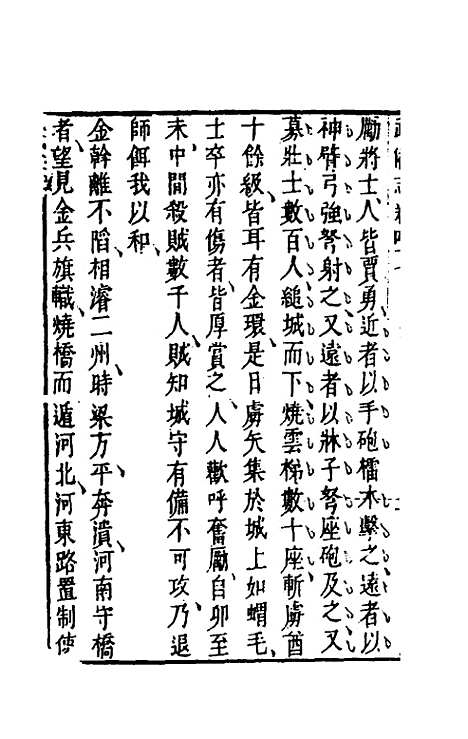 勵將士人皆賈勇近者以手砲檑木擊之遠者以
神臂弓強弩射之又遠者以牀子弩座砲及之又
募壯士數百人縋城而下燒雲梯數十座斬虜酋
十餘級皆耳有金環是日虜矢集於城上如蝟毛
士卒亦有傷者皆厚賞之人人歡呼奮勵自卯至
未中間殺賊數千人賊知城守有備不可攻乃退
師餌我以和
金幹離不䧟相濬二州時梁方平奔潰河南守橋
者望見金兵旗幟燒橋而遁河北河東路置制使